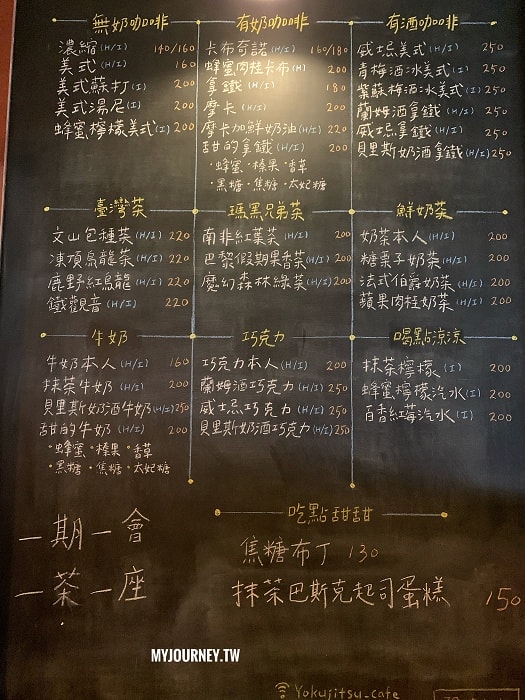 無奶咖啡
濃縮(H/I) 140/160
美式(H/I) 160
美式蘇打(I) 200
美式湯尼(I) 200
蜂蜜檸檬美式(I) 200
有奶咖啡
卡布奇諾(H/I) 160/180
蜂蜜肉桂卡布(H) 200
拿鐵(H/I) 180
摩卡(H/I) 200
摩卡加鮮奶油(H/I) 220
甜的拿鐵(H/I) 200
·蜂蜜·榛果·香草
·黑糖·焦糖·太妃糖
有酒咖啡
威士忌美式(H/I) 250
青梅酒冰美式(I) 250
紫蘇梅酒冰美式(I) 250
蘭姆酒拿鐵(H/I) 250
威士忌拿鐵(H/I) 250
貝里斯奶酒拿鐵(H/I) 250
臺灣茶
文山包種茶(H/I) 220
凍頂烏龍茶(H/I) 220
鹿野紅烏龍(H/I) 220
鐵觀音(H/I) 220
瑪黑兄弟茶
南非紅葉茶(H/I) 200
巴黎假期果香茶(H/I) 200
魔幻森林綠茶(H/I) 200
鮮奶茶
奶茶本人(H/I) 200
糖栗子奶茶(H/I) 200
法式伯爵奶茶(H/I) 200
蘋果肉桂奶茶(H/I) 200
牛奶
牛奶本人(H/I) 160
抹茶牛奶(H/I) 200
貝里斯奶酒牛奶(H/I) 250
甜的牛奶(H/I) 200
·蜂蜜·榛果·香草
·黑糖·焦糖·太妃糖
巧克力
巧克力本人(H/I) 200
蘭姆酒巧克力(H/I) 250
威士忌巧克力(H/I) 250
貝里斯奶酒巧克力(H/I) 250
喝點涼涼
抹茶檸檬(I) 200
蜂蜜檸檬汽水(I) 200
百香紅莓汽水(I) 200
吃點甜甜
焦糖布丁 130
抹茶巴斯克起司蛋糕 150
一期一會
一茶一座
MYJOURNEY.TW
Yokujitsu_cafe